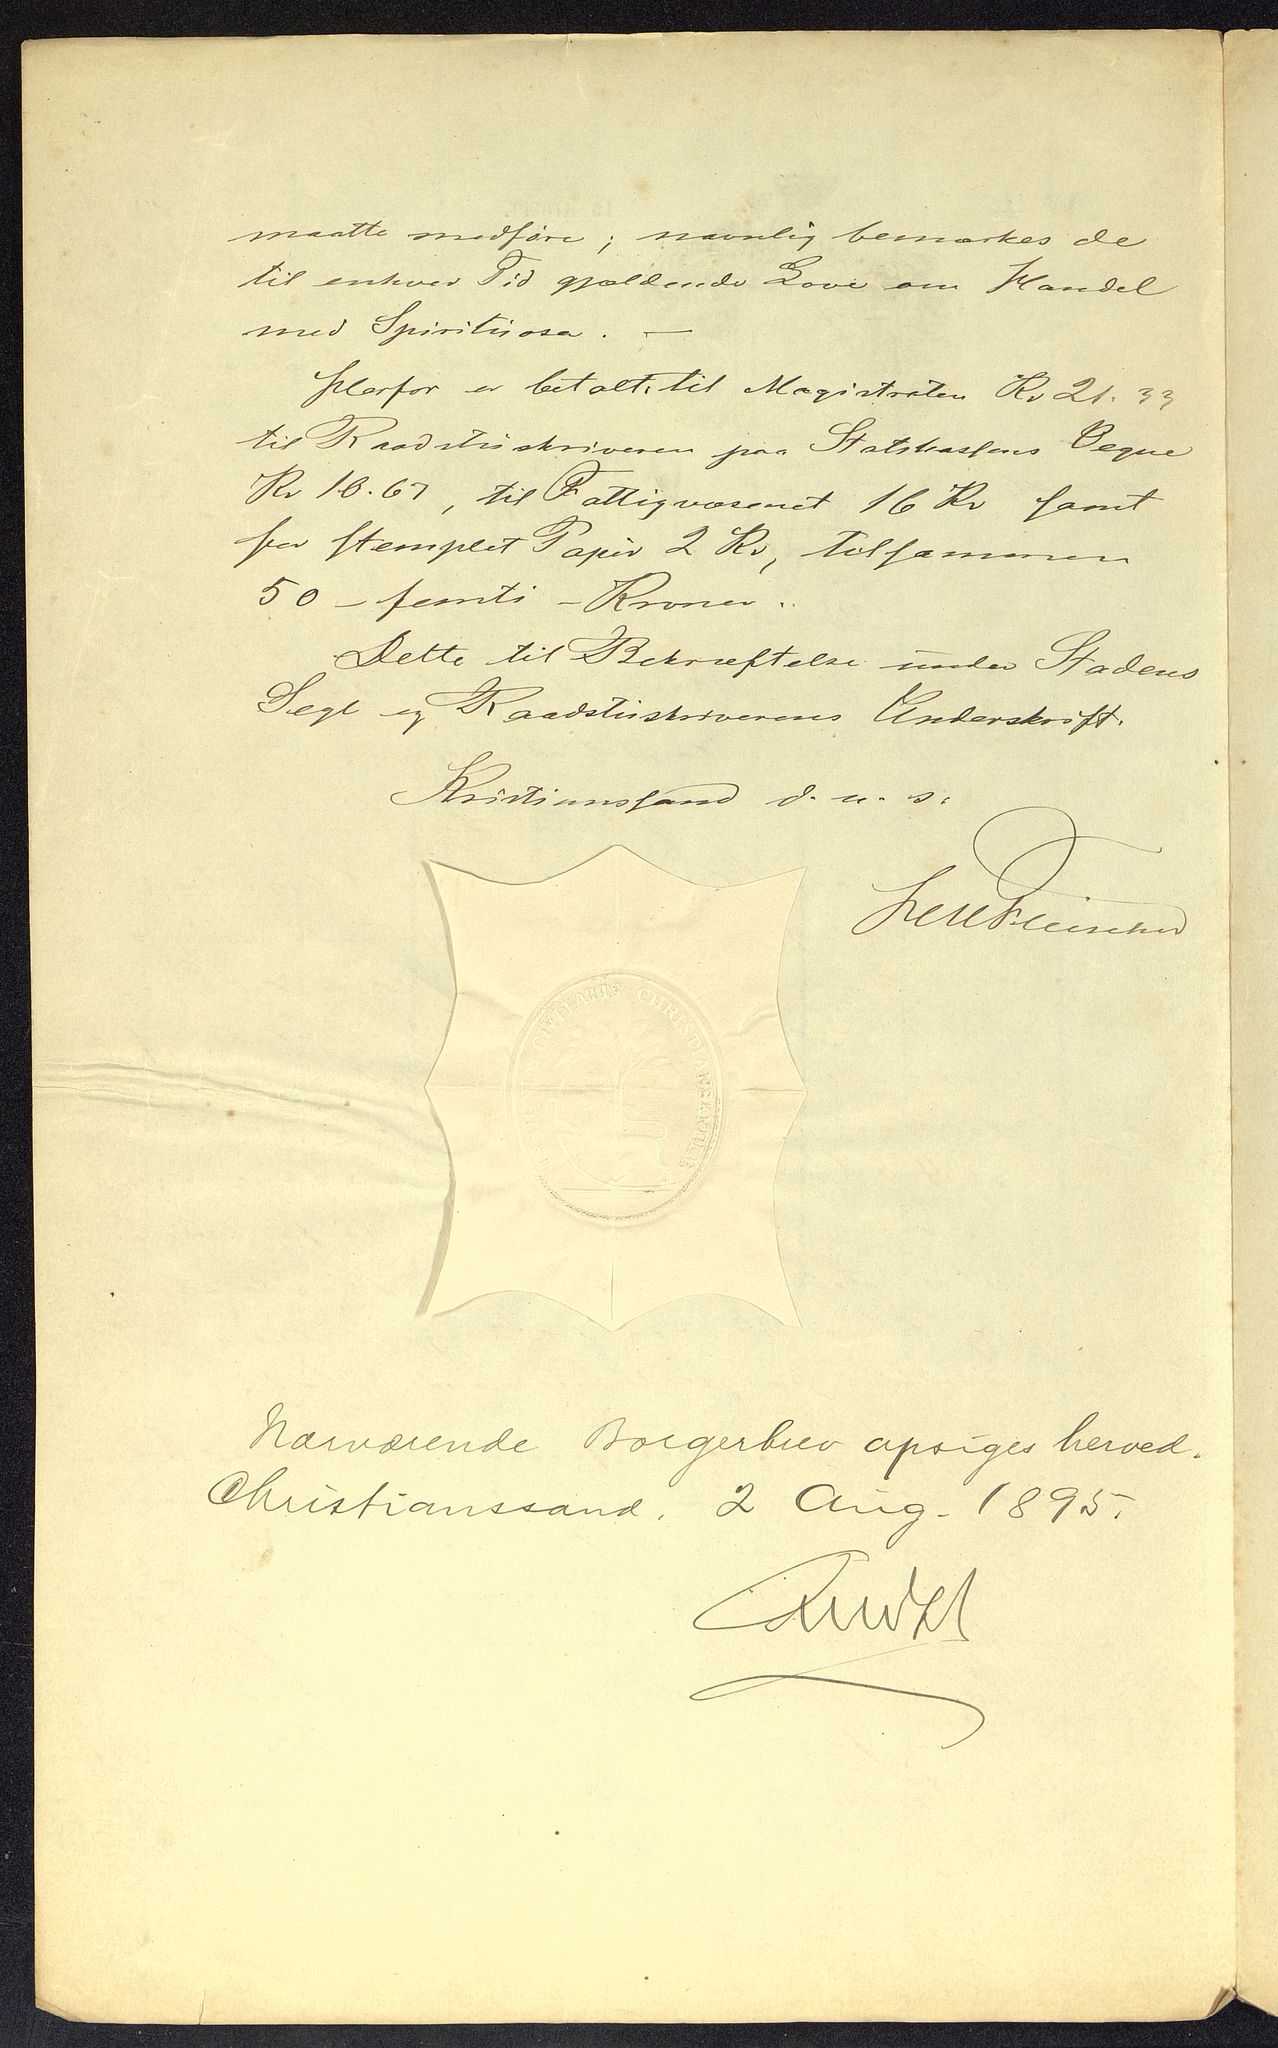 maatte medføre; navnlig bemærkes de
til enhver Tid gjældende Love om Handel
med Spirituosa. —
Herfor er betalt: til Magistraten Kr 21.33
til Raadstuskriveren paa Statskassens Vegne
Kr 10.67, til Fattigvæsenet 16 Kr samt
for stemplet Papir 2 Kr, tilsammen
50 - femti - Kroner.
Dette til Bekræftelse under Stadens
Segl og Raadstuskriverens Underskrift.
Kristianssand d. u. s.
Fleischer
CIVITATIS CHRISTIANSANDIÆ
Nærværende Borgerbrev opsiges herved.
Christianssand, 2 Aug. 1895.